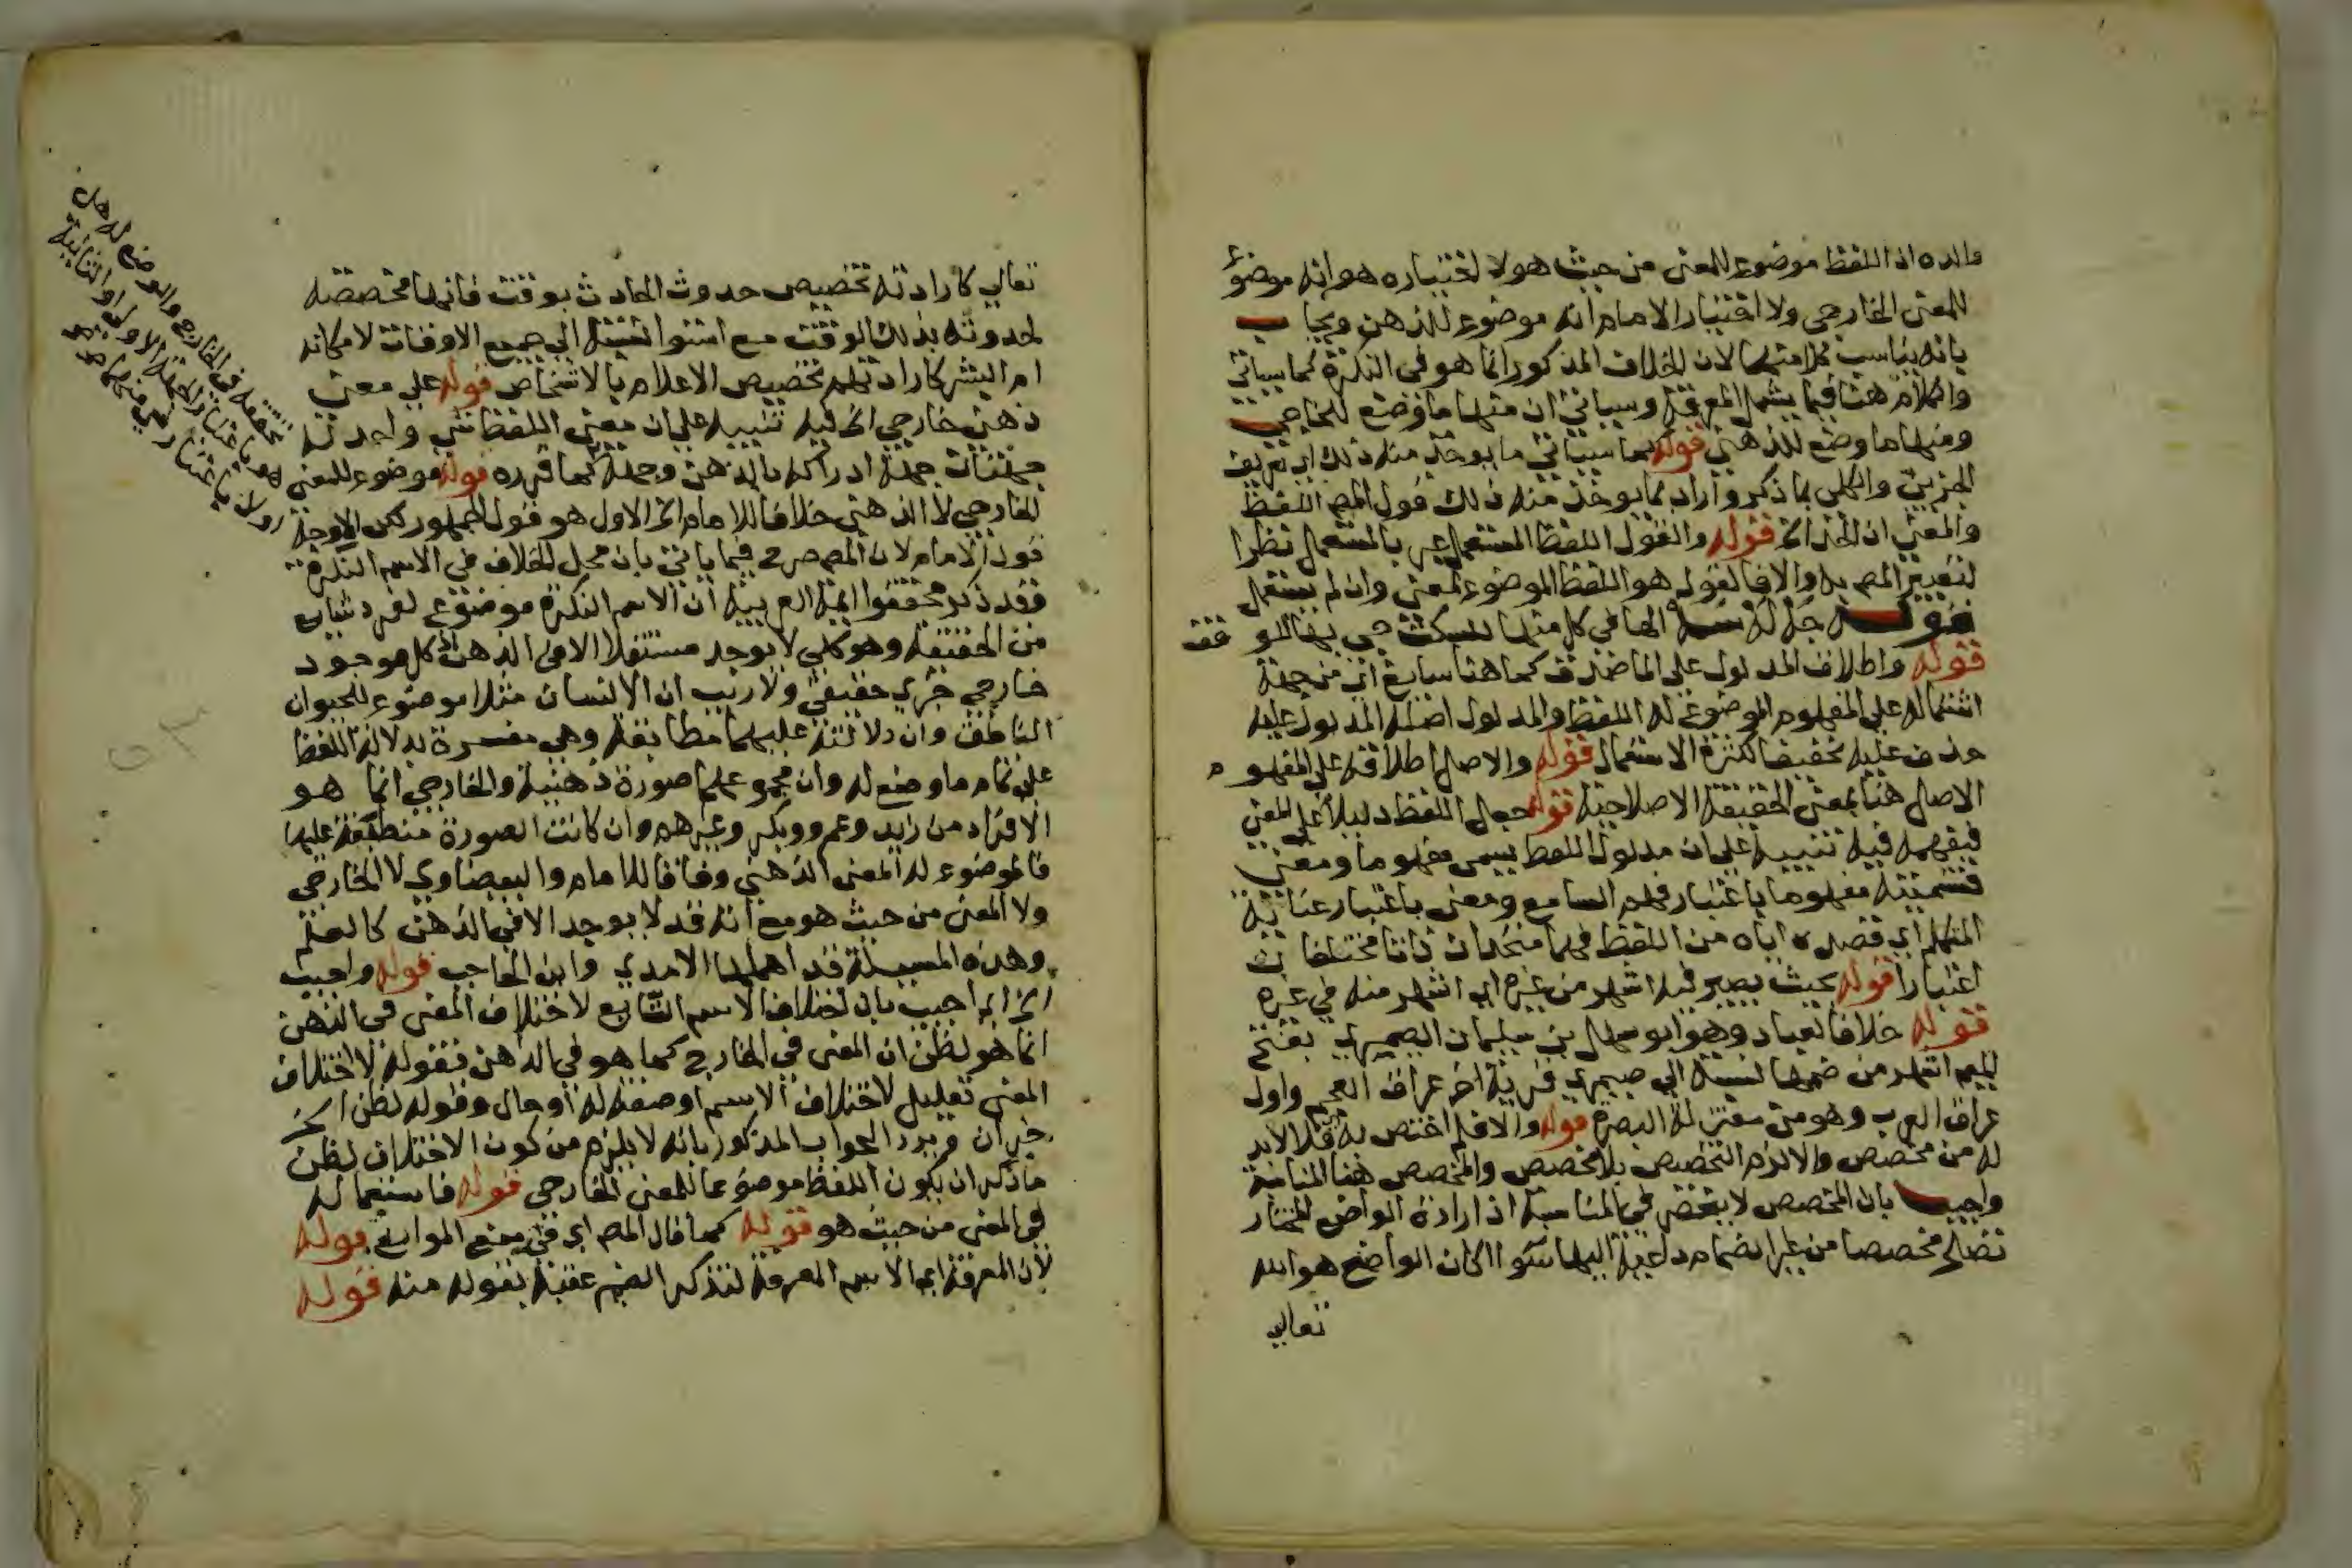 والده اذ اللفظ موضوع للمعنى من حيث هو لا اختياره هو انه موضوع
للمعنى الخارجي ولا اختيار الامام انه موضوع للذهن ويجاب
بانه يناسب كلامنهما لان الخلاف المذكور انما هو في النكرة كما سياتي
والكلام هنا فيما يشمل المعرفة وسياتي ان منها ما وضع للخارجي
ومنها ما وضع للذهني قوله مما سياتي ما يوخذ منه ذلك اي تعريف
الجزيي والكلي بما ذكر واراد بما يوخذ منه ذلك قول المص اللفظ
والمعنى ان اتحدا الخ قوله والقول اللفظ المستعمل عبر بالمستعمل نظرا
لتعبير المص به والا فالقول هو اللفظ الموضوع لمعنى وان لم يستعمل
قوله جه له سه الها في كل منها للسكت جي بها للوقف
قوله واطلاق المدلول على الماصدق كما هنا سايغ اي من جهة
اشتماله على المفهوم الموضوع له اللفظ والمدلول اصله المدلول عليه
حذف عليه تخفيفا لكثرة الاستعمال قوله والاصل اطلاقه على المفهوم
الاصل هنا بمعنى الحقيقة الاصلاحية قوله جعل اللفظ دليلا على المعنى
فيفهمه فيه تنبيه على ان مدلول اللفظ يسمى مفهوما ومعنى
فتسميته مفهوما باعتبار فهم السامع ومعنى باعتبار عناية
المتكلم اي قصده اياه من اللفظ فهما متحدان ذاتا مختلفان
اعتبارا قوله بحيث يصير فيه اشهر من غيره اي اشهر منه في غيره
قوله خلافا لعباد وهو ابو سهل بن سليمان الصيمري بفتح
الميم اشهر من ضمها نسبة الى صيمر قرية اخر عراق العجم واول
عراق العرب وهو من معتزلة البصرة قوله والا فلم اختص به قلا لابد
له من مخصص والا لزم التخصيص بلا مخصص والمخصص هنا المناسبة
واجيب بان المخصص لا ينحصر في المناسبة اذ ارادة الواضع المختار
تصلح مخصصا من غير انضمام داعية اليها سوا اكان الواضع هو الله
تعالى
تعالى كارادته تخصيص حدوث الحادث بوقت فانها مخصصة
لحدوثه بذلك الوقت مع استوا نسبته الى جميع الاوقات لامكانه
ام البشر كارادتهم تخصيص الاعلام بالاشخاص قوله على معنى
ذهني خارجي الخ فيه تنبيه على ان معنى اللفظ شي واحد له
جهتان جهة ادراكه بالذهن وجهة كما قرره قوله موضوع للمعنى
الخارجي لا الذهني خلافا للامام الخ الاول هو قول الجمهور لكن الاوجه
قول الامام لان المص صرح فيما ياتي بان محل الخلاف في الاسم النكرة
فقد ذكر محققوا ايمة العربية ان الاسم النكرة موضوع لفرد شايع
من الحقيقة وهو كلي لا يوجد مستقلا الا في الذهن اذ كل موجود
خارجي جزي حقيقي ولا ريب ان الانسان مثلا موضوع للحيوان
الناطق وان دلالته عليهما مطابقة وهي مفسرة بدلالة اللفظ
على تمام ما وضع له وان مجموعهما صورة ذهنية والخارجي انما هو
الافراد من زيد وعمرو وبكر وغيرهم وان كانت الصورة منطبقة عليها
فالموضوع له المعنى الذهني وفاقا للامام والبيضاوي لا الخارجي
ولا المعنى من حيث هو مع انه قد لا يوجد الا في الذهن كالعلم
وهذه المسيلة قد اهملها الامدي وابن الحاجب قوله واجيب
الخ اي اجيب بان اختلاف الاسم التابع لاختلاف المعنى في الذهن
انما هو لظن ان المعنى في الخارج كما هو في الذهن فقوله لاختلاف
المعنى تعليل لاختلاف الاسم او صفة له او حال وقوله لظن الخ
خبر ان ويرد الجواب المذكور بانه لا يلزم من كون الاختلاف لظن
ما ذكر ان يكون اللفظ موضوعا للمعنى الخارجي قوله فاستعماله
في المعنى من حيث هو قوله كما قال المص اي في منع الموانع قوله
لان المعرفة اي الاسم المعرفة لتذكير الضمير عقبه بقوله منه قوله
تحققه في الخارج والوضع له هل
هو باعتبار الجهة الاولى او الثانية
او لا باعتبار